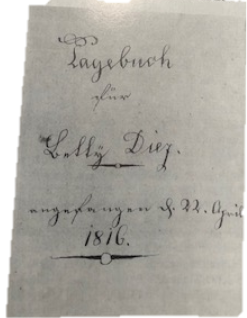 Tagebuch
für
Betty Diez.
angefangen d. 22. April
1816.